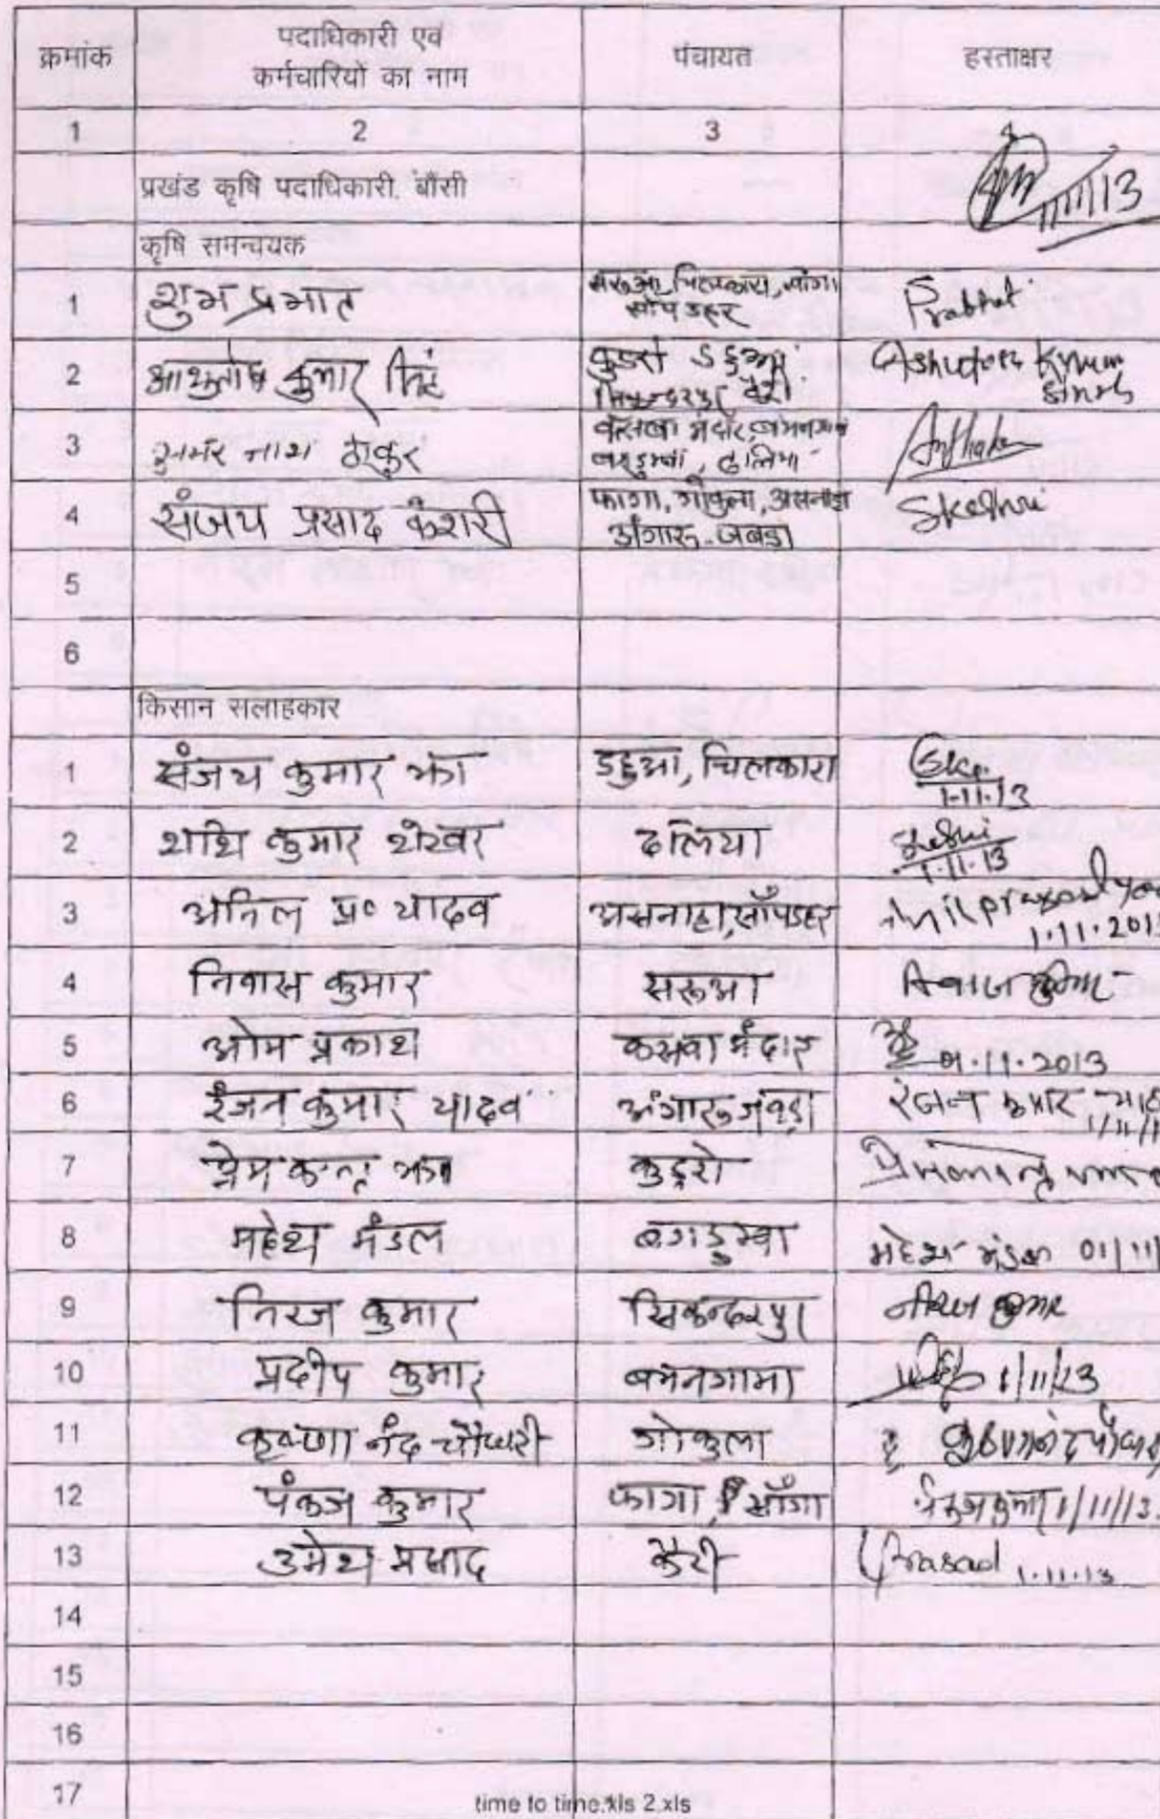 क्रमांक पदाधिकारी एवं कर्मचारियों का नाम पंचायत हस्ताक्षर
1 2 3 4
प्रखंड कृषि पदाधिकारी, बौंसी 1/11/13
कृषि समन्वयक
1 शुभ प्रभात सरूआ, चिलकारा, सांगा Prabhat
साँपडहर
2 आशुतोष कुमार सिंह कुडरो डहुआ Ashutosh Kumar
सिकन्दरपुर कैरी Singh
3 अमर नाथ ठाकुर कसबा मंदार, बभनगामा
बगडुम्बा, ढलिया
4 संजय प्रसाद केशरी फागा, गोकुला, असनाहा Skeshri
अंगारू-जबडा
5
6
किसान सलाहकार
1 संजय कुमार झा डहुआ, चिलकारा
1.11.13
2 शशि कुमार शेखर ढलिया Shashi
1.11.13
3 अनिल प्र० यादव असनाहा, साँपडहर Anil prasad
1.11.201
4 निवास कुमार सरूआ निवास कुमार
5 ओम प्रकाश कसवा मंदार 01.11.2013
6 रंजन कुमार यादव अंगारू जबड़ा रंजन कुमार
7 प्रेम कान्त झा कुडरो
8 महेश मंडल बगडुम्बा महेश मंडल 01/11/
9 निरज कुमार सिकन्दरपुर नीरज कुमार
10 प्रदीप कुमार बभनगामा 1/11/13
11 कृष्णा नंद चौधरी गोकुला कृष्णानंद चौधरी
12 पंकज कुमार फागा, साँगा पंकज कुमार 1/11/13
13 उमेश प्रसाद कैरी UPrasad 1.11.13
14
15
16
17
time to time.xls 2.xls